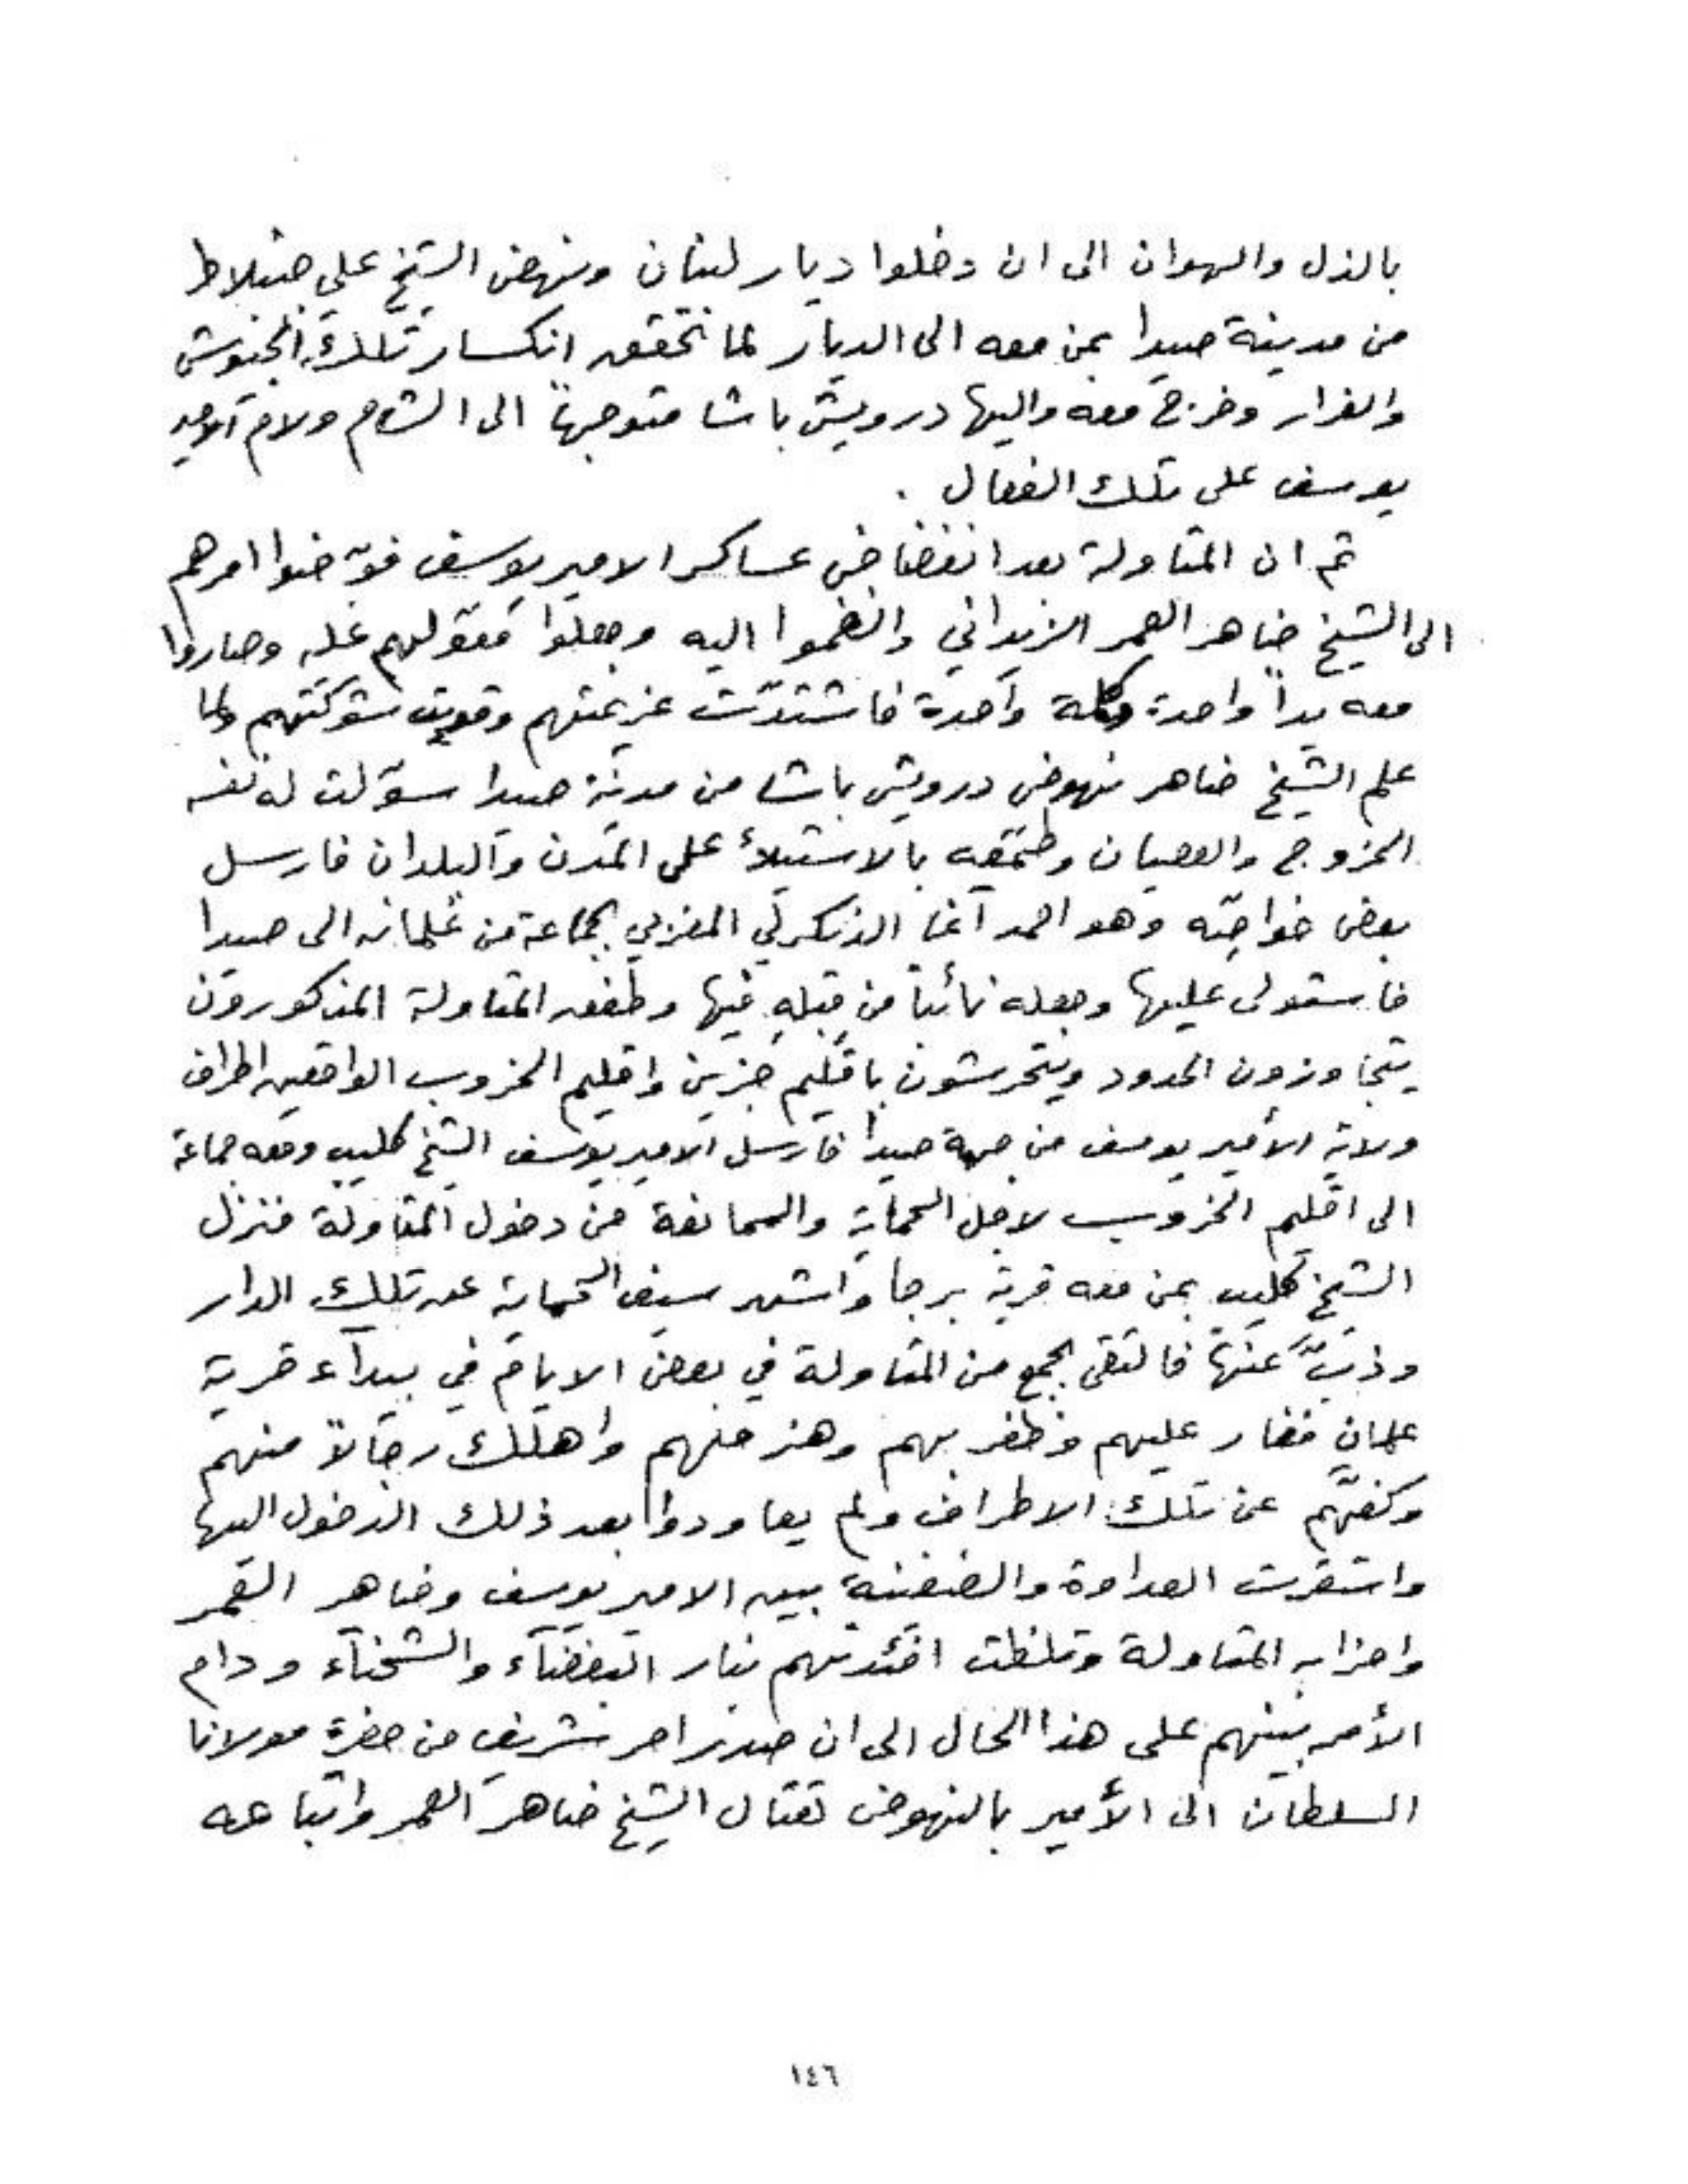 بالذل والهوان الى ان دخلوا ديار لبنان ونهض الشيخ علي جنبلاط
من مدينة صيدا بمن معه الى الديار لما تحقق انكسار تلك الجيوش
والفرار وخرج معه واليها درويش باشا متوجهاً الى الشام ولام الامير
يوسف على تلك الفعال .
ثم ان المتاولة بعد انفضاض عساكر الامير يوسف فوّضوا امرهم
الى الشيخ ضاهر العمر الزيداني وانضموا اليه وجعلوا معوّلهم عليه وصاروا
معه يداً واحدة وكلمة واحدة فاشتدّت عزيمتهم وقويت شوكتهم ولما
علم الشيخ ضاهر نهوض درويش باشا من مدينة صيدا سوّلت له نفسه
الخروج والعصيان وطمّعته بالاستيلاء على المدن والبلدان فارسل
بعض خواصّه وهو احمد آغا الدنكزلي المغربي بجماعة من غلمانه الى صيدا
فاستولى عليها وجعله نائباً من قبله فيها وطفق المتاولة المذكورون
يتجاوزون الحدود ويتحرشون باقليم جزين واقليم الخروب الواقعين اطراف
ولاية الأمير يوسف من جهة صيدا فارسل الامير يوسف الشيخ كليب ومعه جماعة
الى اقليم الخروب لاجل الحماية والممانعة من دخول المتاولة فنزل
الشيخ كليب بمن معه قرية برجا واشهر سيف الحماية عن تلك الدار
وذبّ عنها فالتقى بجمع من المتاولة في بعض الايام في بيدآء قرية
علمان فغار عليهم وظفر بهم وهزمهم واهلك رجالاً منهم
وكفّهم عن تلك الاطراف ولم يعاودوا بعد ذلك الدخول اليها
واستقرت العداوة والضغينة بين الامير يوسف وضاهر العمر
واحزابه المتاولة وتلظت افئدتهم بنار البغضآء والشحنآء ودام
الأمر بينهم على هذا الحال الى ان صدر امر شريف من حضرة مولانا
السلطان الى الأمير بالنهوض لقتال الشيخ ضاهر العمر واتباعه
١٤٦